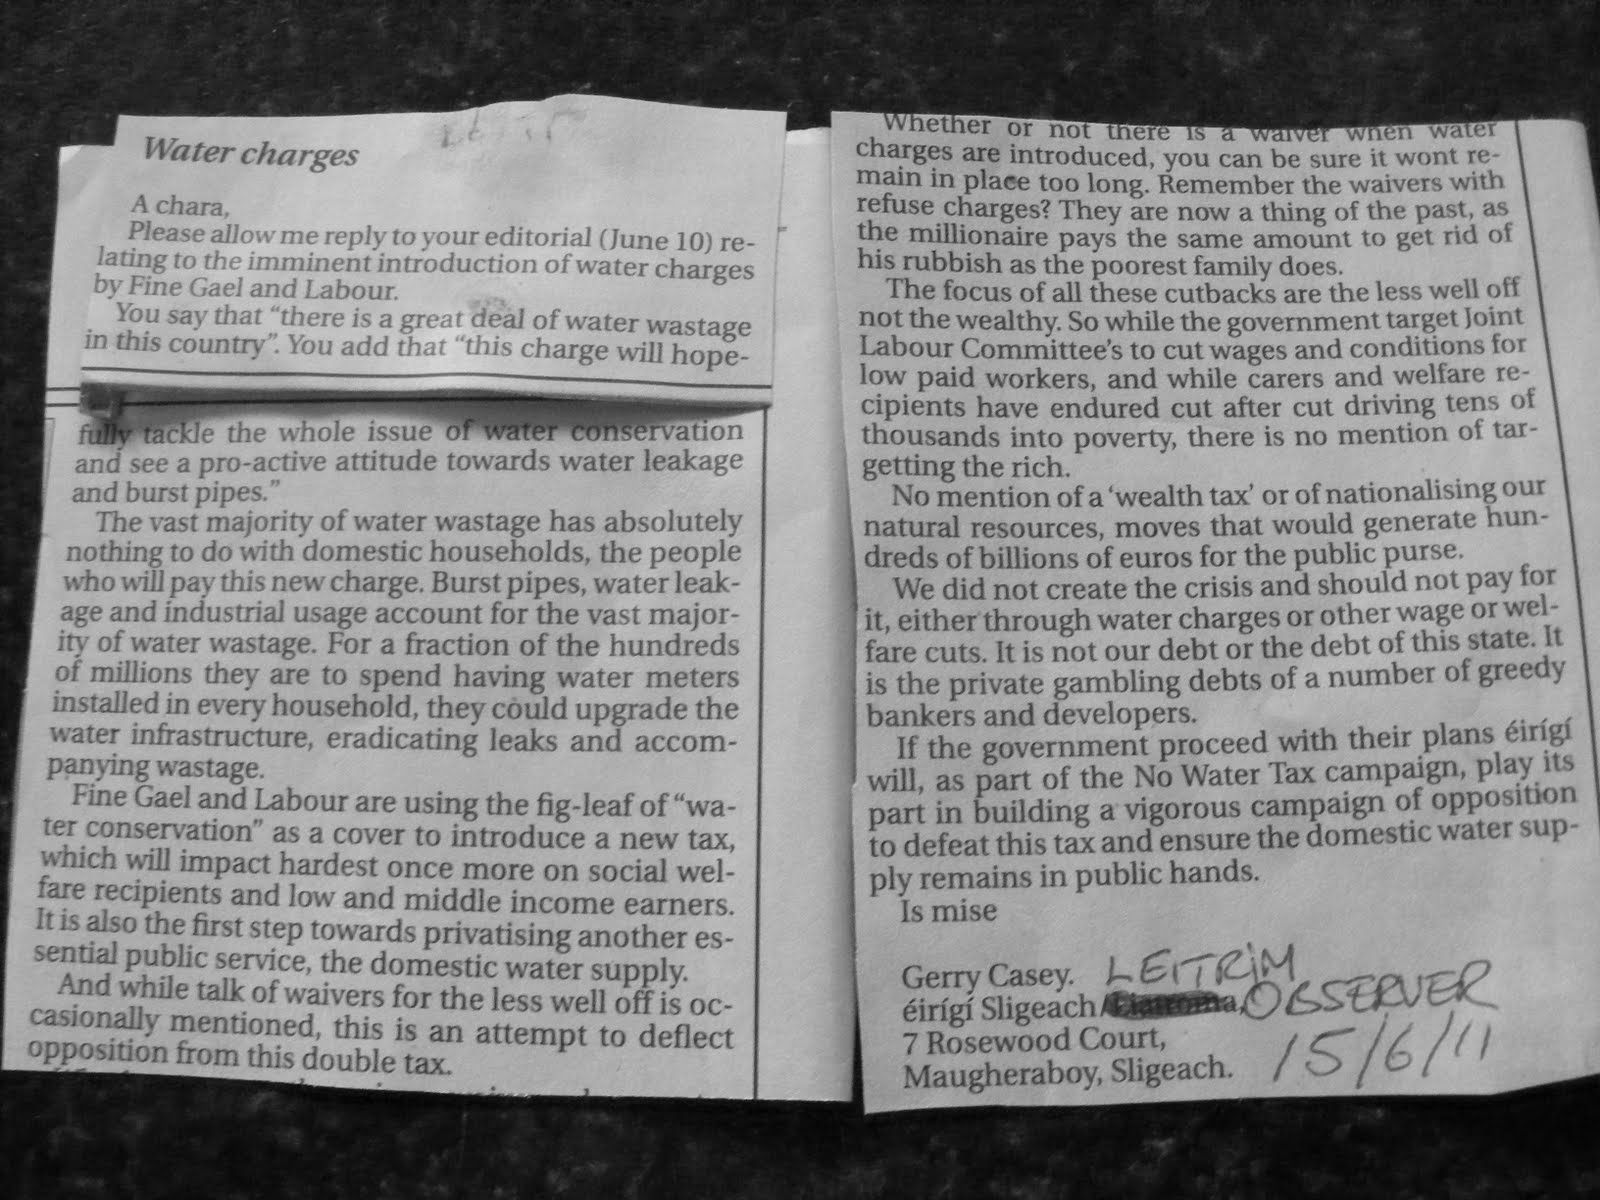 Water charges
A chara,
Please allow me reply to your editorial (June 10) re-
lating to the imminent introduction of water charges
by Fine Gael and Labour.
You say that “there is a great deal of water wastage
in this country”. You add that “this charge will hope-
fully tackle the whole issue of water conservation
and see a pro-active attitude towards water leakage
and burst pipes.”
The vast majority of water wastage has absolutely
nothing to do with domestic households, the people
who will pay this new charge. Burst pipes, water leak-
age and industrial usage account for the vast major-
ity of water wastage. For a fraction of the hundreds
of millions they are to spend having water meters
installed in every household, they could upgrade the
water infrastructure, eradicating leaks and accom-
panying wastage.
Fine Gael and Labour are using the fig-leaf of “wa-
ter conservation” as a cover to introduce a new tax,
which will impact hardest once more on social wel-
fare recipients and low and middle income earners.
It is also the first step towards privatising another es-
sential public service, the domestic water supply.
And while talk of waivers for the less well off is oc-
casionally mentioned, this is an attempt to deflect
opposition from this double tax.
Whether or not there is a waiver when water
charges are introduced, you can be sure it wont re-
main in place too long. Remember the waivers with
refuse charges? They are now a thing of the past, as
the millionaire pays the same amount to get rid of
his rubbish as the poorest family does.
The focus of all these cutbacks are the less well off
not the wealthy. So while the government target Joint
Labour Committee’s to cut wages and conditions for
low paid workers, and while carers and welfare re-
cipients have endured cut after cut driving tens of
thousands into poverty, there is no mention of tar-
getting the rich.
No mention of a ‘wealth tax’ or of nationalising our
natural resources, moves that would generate hun-
dreds of billions of euros for the public purse.
We did not create the crisis and should not pay for
it, either through water charges or other wage or wel-
fare cuts. It is not our debt or the debt of this state. It
is the private gambling debts of a number of greedy
bankers and developers.
If the government proceed with their plans éirígí
will, as part of the No Water Tax campaign, play its
part in building a vigorous campaign of opposition
to defeat this tax and ensure the domestic water sup-
ply remains in public hands.
Is mise
Gerry Casey. LEITRIM
éirígí Sligeach/ OBSERVER
7 Rosewood Court,
Maugheraboy, Sligeach. 15/6/11